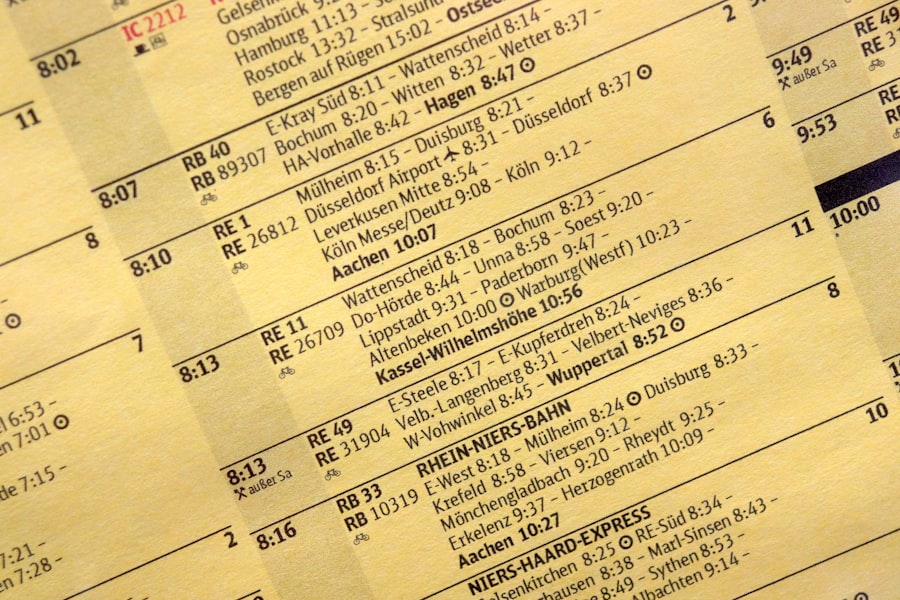 11
8
7
6:53 –
7:01
de 7:15 –
7:21 –
7:28 –
2
8:02
IC 2212
Gelsenki
Osnabrück 9:2
Hamburg 11:13 – So
Rostock 13:32 – Stralsund
Bergen auf Rügen 15:02 – Ostsee
8:07
RB 40
RB 89307
E-Kray Süd 8:11 – Wattenscheid 8:14 –
Bochum 8:20 – Witten 8:32 – Wetter 8:37 –
HA-Vorhalle 8:42 – Hagen 8:47
2
8:10
RE 1
RE 26812
Mülheim 8:15 – Duisburg 8:21 –
Düsseldorf Airport 8:31 – Düsseldorf 8:37
Leverkusen Mitte 8:54 –
Köln Messe/Deutz 9:08 – Köln 9:12 –
Aachen 10:07
6
8:13
RE 11
RE 26709
Wattenscheid 8:18 – Bochum 8:23 –
Do-Hörde 8:44 – Unna 8:58 – Soest 9:20 –
Lippstadt 9:31 – Paderborn 9:47 –
Altenbeken 10:00 Warburg(Westf) 10:23 –
Kassel-Wilhelmshöhe 10:56
11
8:13
außer Sa
RE 49
RE 31904
E-Steele 8:17 – E-Kupferdreh 8:24 –
Velb.-Langenberg 8:31 – Velbert-Neviges 8:36 –
W-Vohwinkel 8:45 – Wuppertal 8:52
8
8:16
RB 33
RB 10319
RHEIN-NIERS-BAHN
E-West 8:18 – Mülheim 8:24 Duisburg 8:33 –
Krefeld 8:58 – Viersen 9:12 –
Mönchengladbach 9:20 – Rheydt 9:25 –
Erkelenz 9:37 – Herzogenrath 10:09 –
Aachen 10:27
10
NIERS-HAARD-EXPRESS
elsenkirchen 8:25 RE-Süd 8:34 –
ghausen 8:38 – Marl-Sinsen 8:43 –
8:49 – Sythen 8:53 –
Albachten 9:14 –
9:49
außer Sa
RE 49
RE 3
9:53
RE
10:00